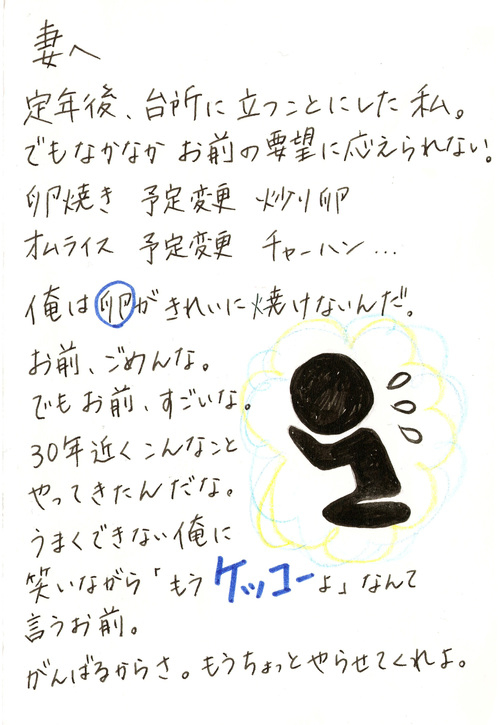 妻へ
定年後、台所に立つことにした私。
でもなかなかお前の要望に応えられない。
卵焼き 予定変更 炒り卵
オムライス 予定変更 チャーハン…
俺は卵がきれいに焼けないんだ。
お前、ごめんな。
でもお前、すごいな。
30年近くこんなこと
やってきたんだな。
うまくできない俺に
笑いながら「もうケッコーよ」なんて
言うお前。
がんばるからさ。もうちょっとやらせてくれよ。